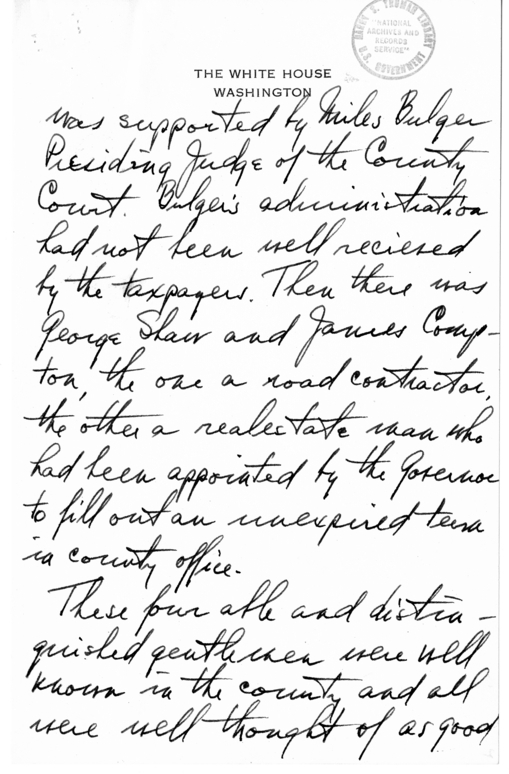 HARRY S. TRUMAN LIBRARY
"NATIONAL
ARCHIVES AND
RECORDS
SERVICE"
U.S. GOVERNMENT
THE WHITE HOUSE
WASHINGTON
was supported by Miles Bulger
Presiding Judge of the County
Court. Bulger's administration
had not been well recieved
by the taxpayers. Then there was
George Shaw and James Comp-
ton, the one a road contractor,
the other a realestate man who
had been appointed by the Governor
to fill out an unexpired term
in county office.
These four able and distin-
guished gentlemen were well
known in the county and all
were well thought of as good